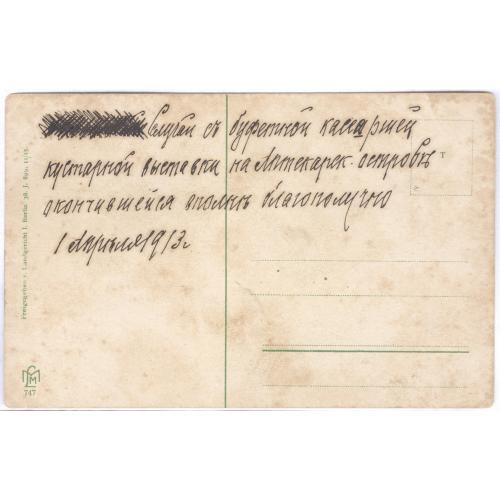 Случай съ буфетной кассиршей
кустарной выставки на Аптекарск. островѣ
окончившейся вполнѣ благополучно
1 Апрѣля 1913 г
Freigegeben v. Landgericht I. Berlin
T
747